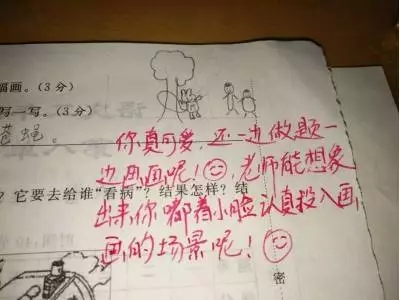 幅画。（3分）
写一写。（3分）
苍蝇。
你真可爱，还一边做题一
边画画呢！老师能想象
？它要去给谁“看病”？结果怎样？结
出来你嘟着小脸认真投入画
画的场景呢！
密